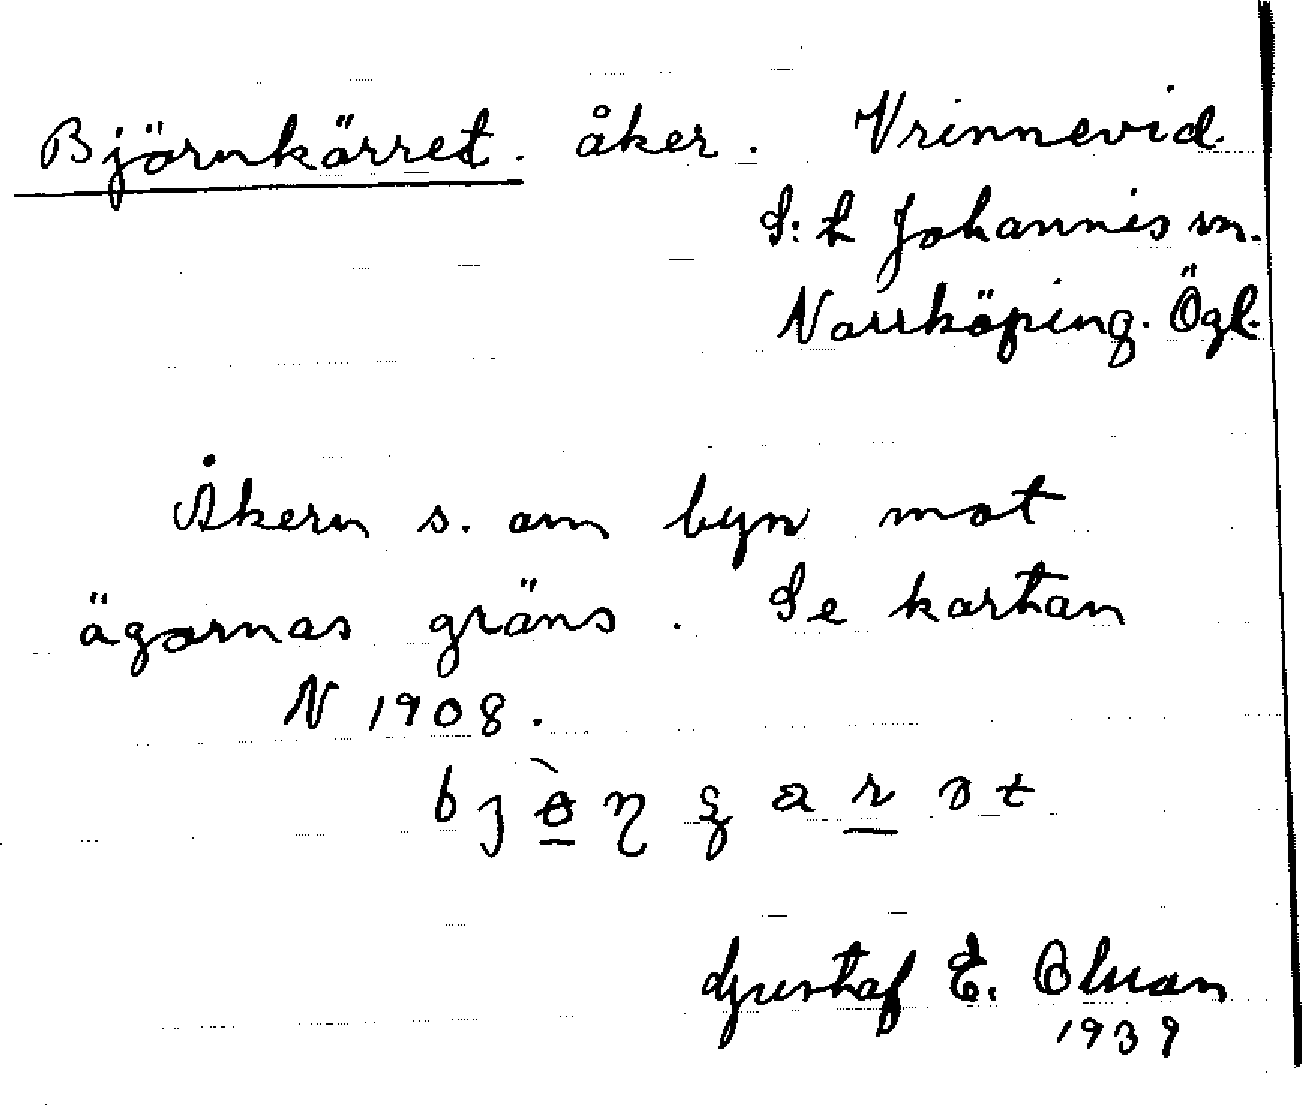 Björnkärret. åker. Vrinnevid
S:t Johannis sn.
Norrköping. Ögl.
Åkern s. om byn mot
ägornas gräns. Se kartan
N 1908.
Gustaf E. Olson
1939